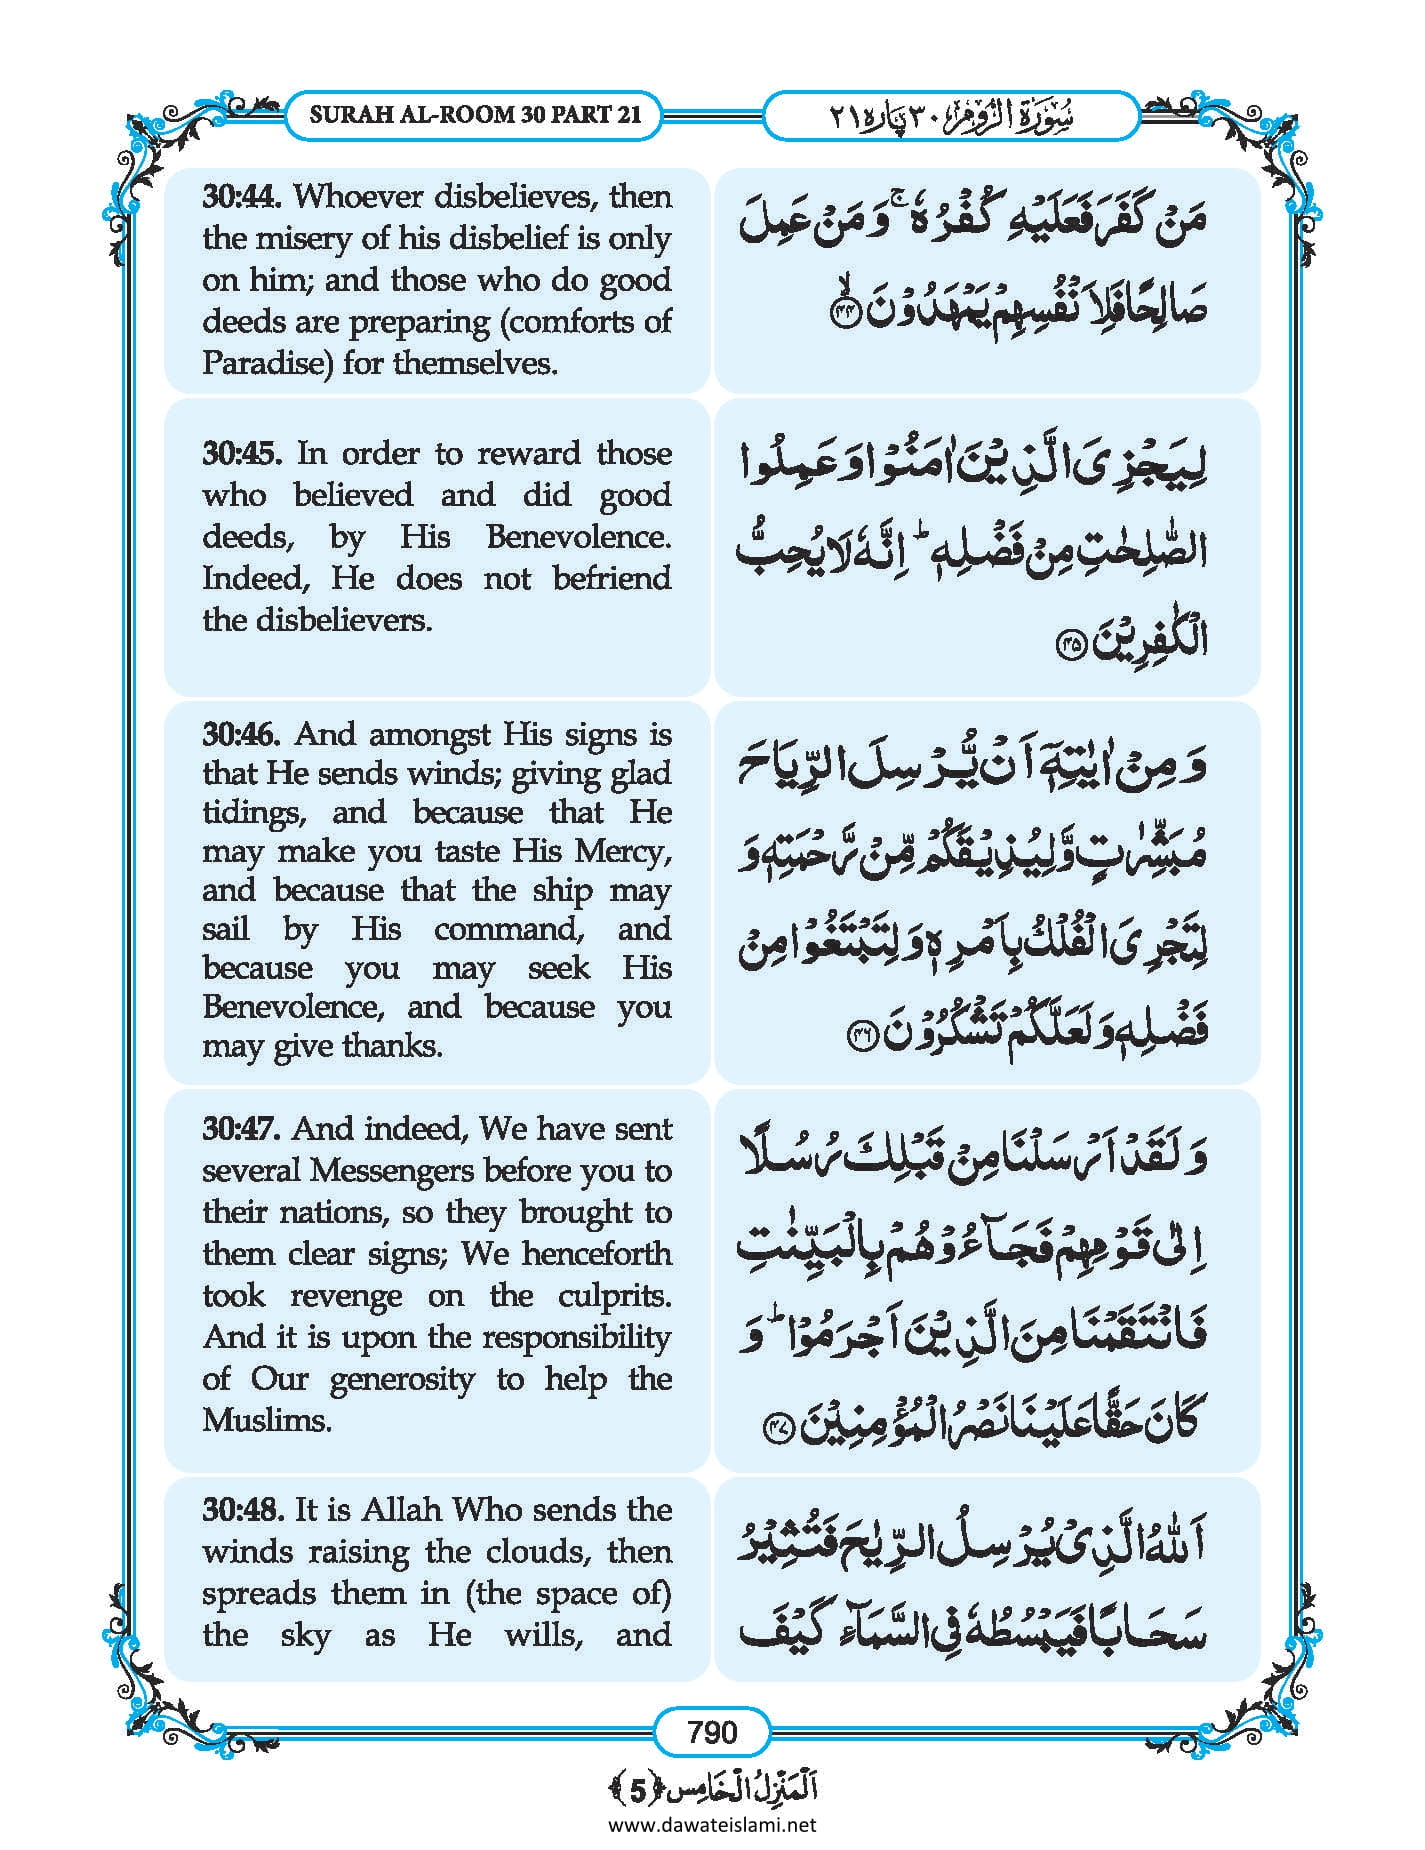 SURAH AL-ROOM 30 PART 21
سُوْرَةُ الرُّوْمِ ٣٠ پارہ ٢١
30:44. Whoever disbelieves, then
the misery of his disbelief is only
on him; and those who do good
deeds are preparing (comforts of
Paradise) for themselves.
مَنْ كَفَرَ فَعَلَيْهِ كُفْرُهٗ ۚ وَ مَنْ عَمِلَ
صَالِحًا فَلِاَنْفُسِهِمْ يَمْهَدُوْنَ ۙ﴿۴۴﴾
30:45. In order to reward those
who believed and did good
deeds, by His Benevolence.
Indeed, He does not befriend
the disbelievers.
لِيَجْزِىَ الَّذِيْنَ اٰمَنُوْا وَ عَمِلُوا
الصّٰلِحٰتِ مِنْ فَضْلِهٖ ؕ اِنَّهٗ لَا يُحِبُّ
الْكٰفِرِيْنَ ﴿۴۵﴾
30:46. And amongst His signs is
that He sends winds; giving glad
tidings, and because that He
may make you taste His Mercy,
and because that the ship may
sail by His command, and
because you may seek His
Benevolence, and because you
may give thanks.
وَ مِنْ اٰيٰتِهٖۤ اَنْ يُّرْسِلَ الرِّيَاحَ
مُبَشِّرٰتٍ وَّ لِيُذِيْقَكُمْ مِّنْ رَّحْمَتِهٖ وَ
لِتَجْرِىَ الْفُلْكُ بِاَمْرِهٖ وَ لِتَبْتَغُوْا مِنْ
فَضْلِهٖ وَ لَعَلَّكُمْ تَشْكُرُوْنَ ﴿۴۶﴾
30:47. And indeed, We have sent
several Messengers before you to
their nations, so they brought to
them clear signs; We henceforth
took revenge on the culprits.
And it is upon the responsibility
of Our generosity to help the
Muslims.
وَ لَقَدْ اَرْسَلْنَا مِنْ قَبْلِكَ رُسُلًا
اِلٰى قَوْمِهِمْ فَجَآءُوْهُمْ بِالْبَيِّنٰتِ
فَانْتَقَمْنَا مِنَ الَّذِيْنَ اَجْرَمُوْا ؕ وَ
كَانَ حَقًّا عَلَيْنَا نَصْرُ الْمُؤْمِنِيْنَ ﴿۴۷﴾
30:48. It is Allah Who sends the
winds raising the clouds, then
spreads them in (the space of)
the sky as He wills, and
اَللّٰهُ الَّذِىْ يُرْسِلُ الرِّيٰحَ فَتُثِيْرُ
سَحَابًا فَيَبْسُطُهٗ فِى السَّمَآءِ كَيْفَ
790
اَلْمَنْزِلُ الْخَامِس ﴿5﴾
www.dawateislami.net